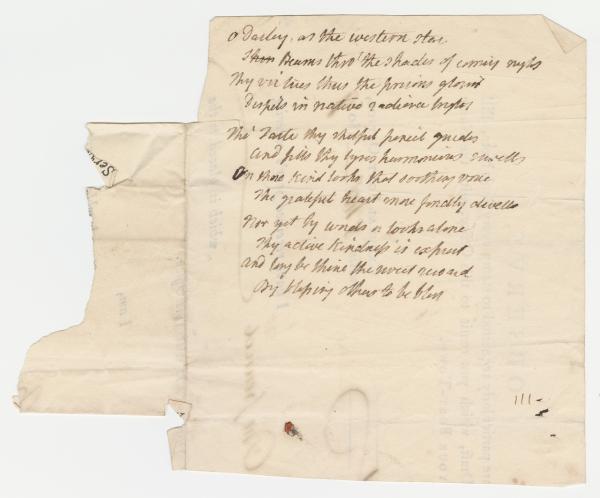 O Darley, as the western star
Shon Beams thro' the shades of coming night
Thy virtues thus the prisons gloom
Dispels in native radiance bright
Tho' Taste thy skilful pencil guides
And fills thy lyres harmonious swells
On those kind looks that soothing voice
The grateful heart more fondly dwells
Nor yet by words or looks alone
Thy active kindness is exprest
And long be thine the sweet reward
By blessing others to be blest
111-